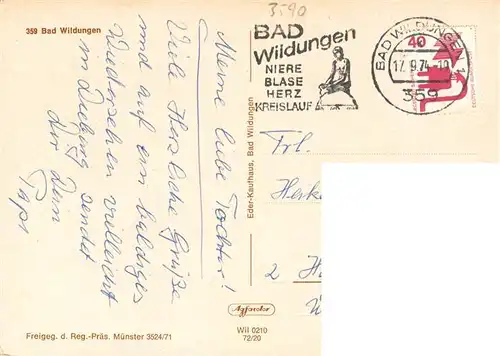 3590
359 Bad Wildungen
BAD
Wildungen
NIERE
BLASE
HERZ
KREISLAUF
BAD WILDUNGEN 1
17.9.74-19
359
40
Meine liebe Tochter!
Viele Herzliche Grüße
und auf ein baldiges
Wiedersehen vielleicht
in Dieburg sendet
dir Dein
Paps
Eder-Kaufhaus, Bad Wildungen
Frl.
2
Agfacolor
Wil 0210
72/20
Freigeg. d. Reg.-Präs. Münster 3524/71